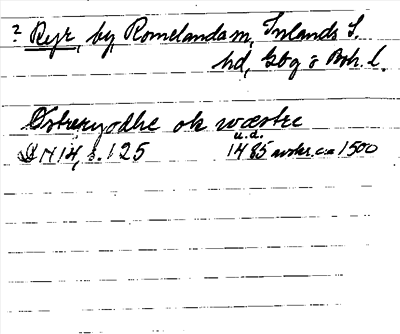 ? Ryr, by, Romelanda sn, Inlands S.
hd, Gbg o Boh. l.
Østreryodhe ok wæstre
NI 14, s. 125 u.d. 1485 avskr. c:a 1500